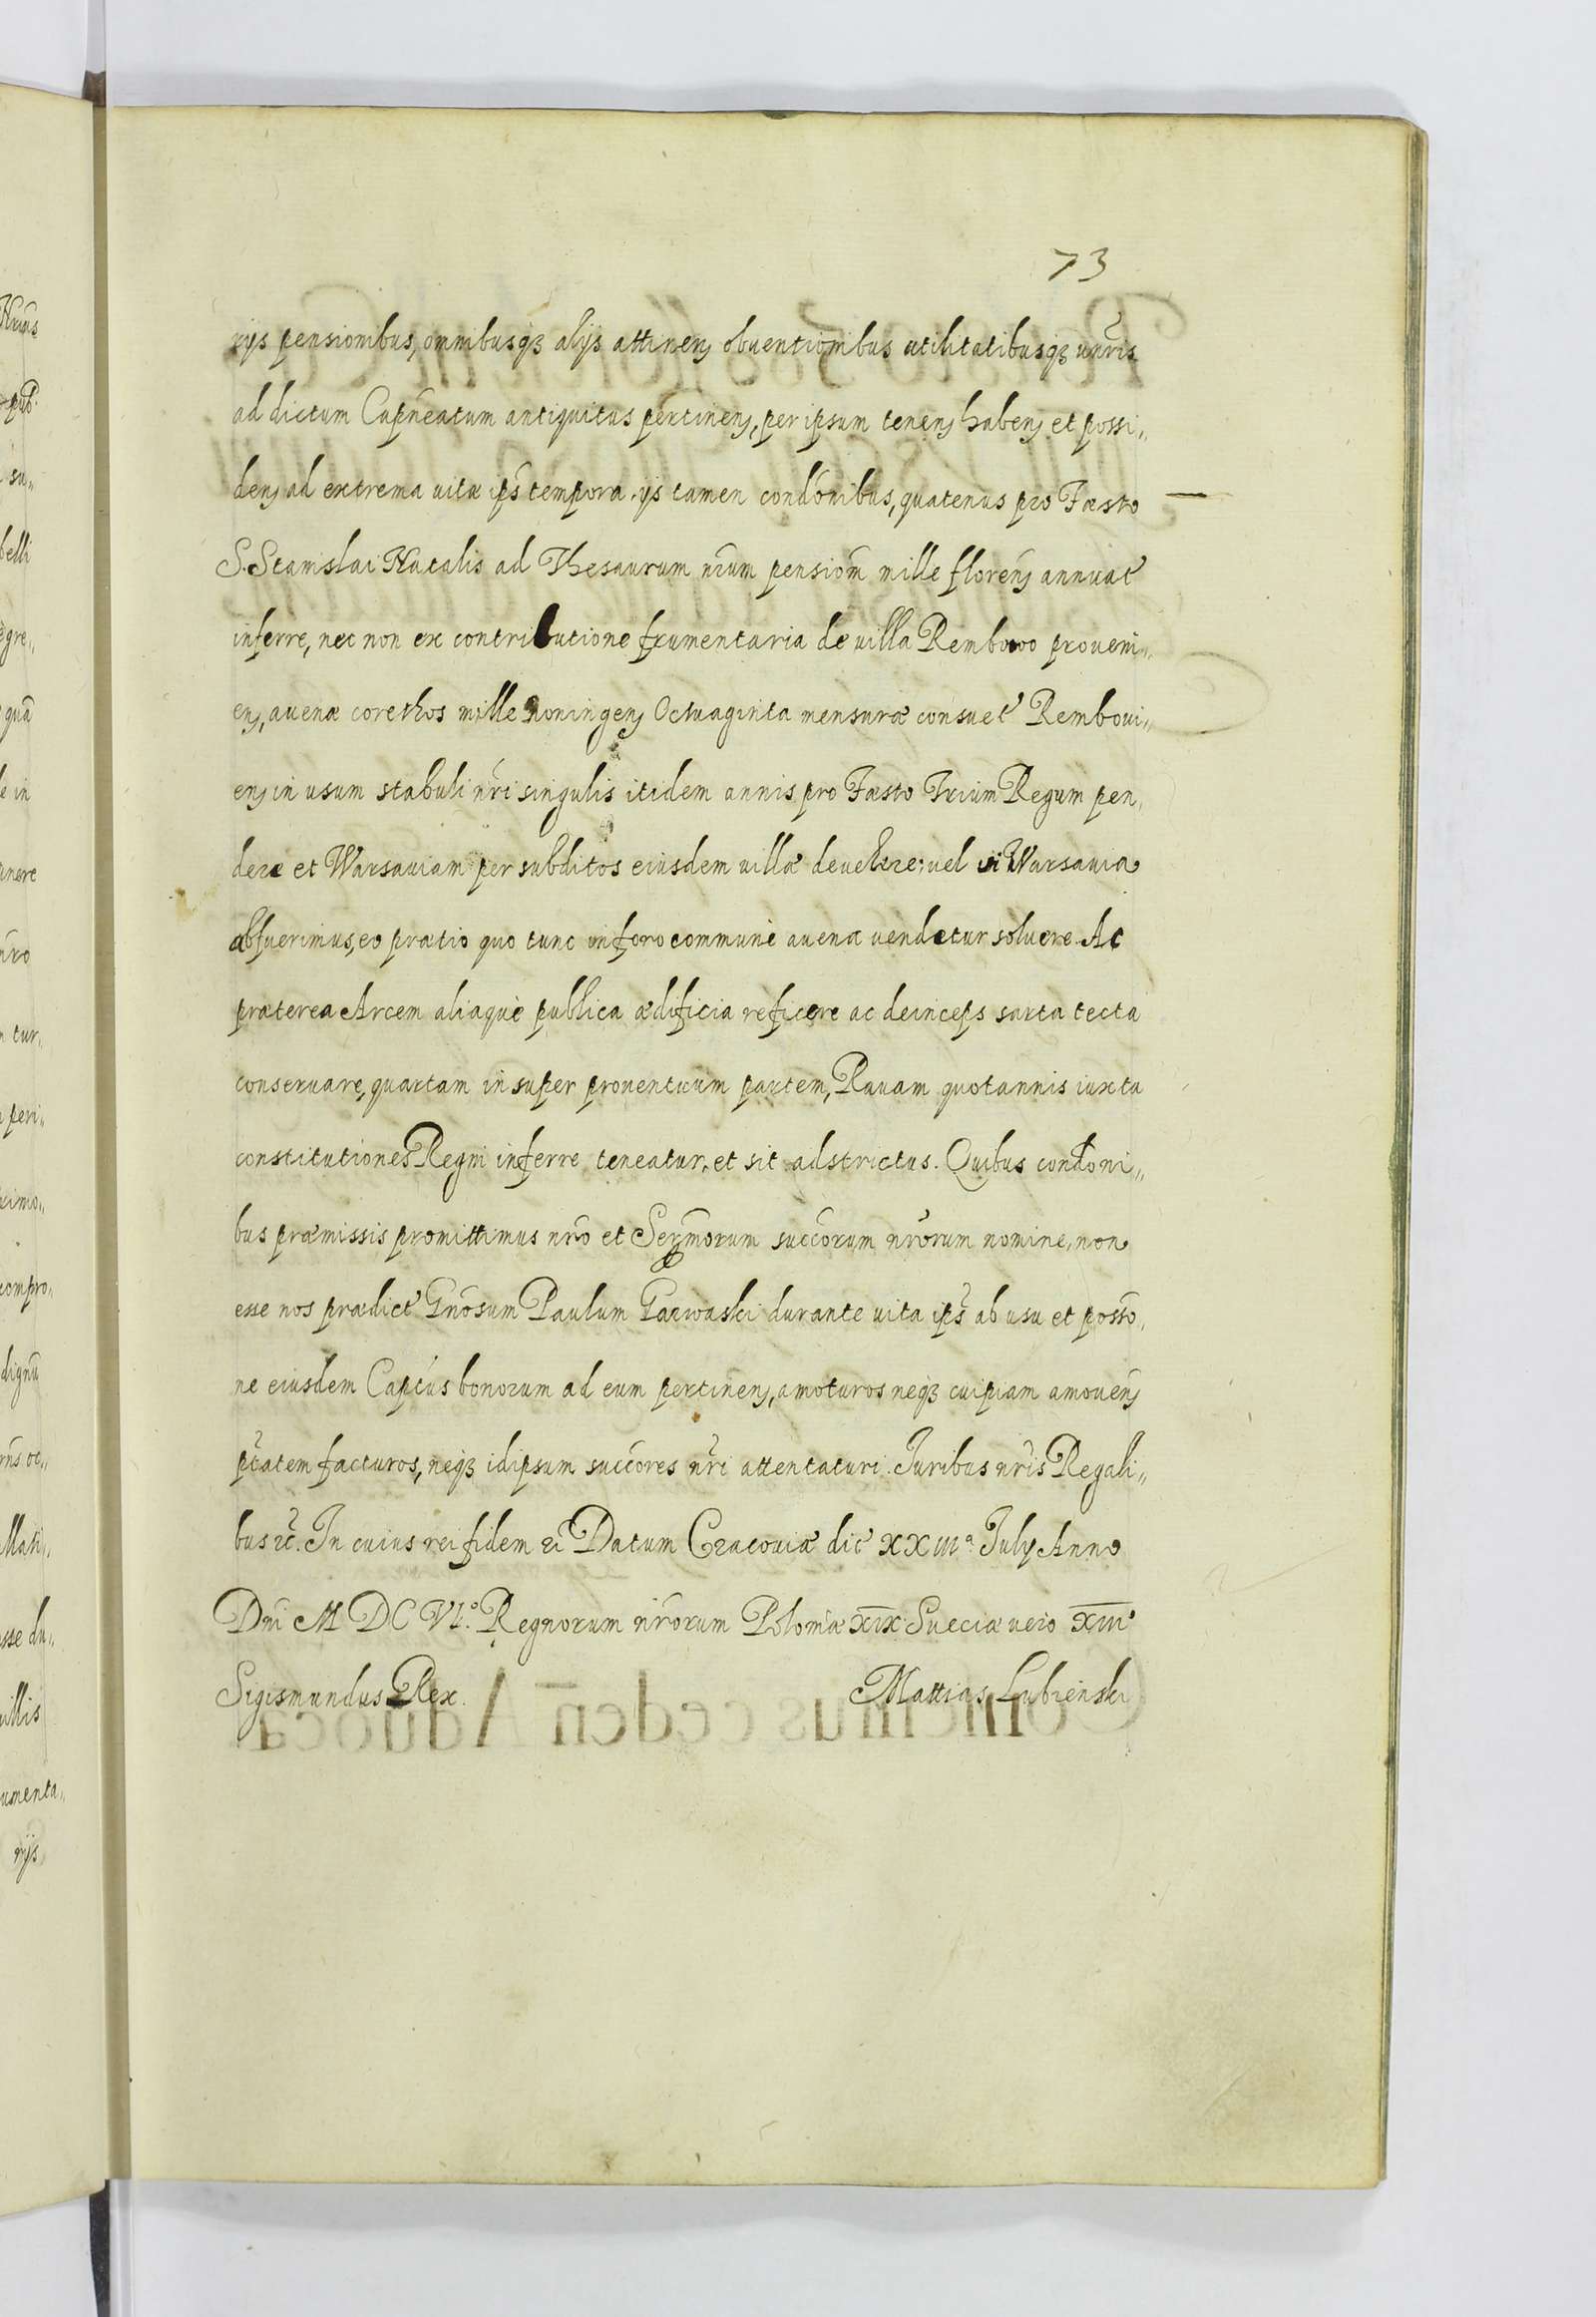 73
rijs pensionibus, omnibusqz alijs attinen obuentionibus utilitatibusqz unīris
ad dictum Capneatum antiquitus pertinen, per ipsum tenen haben et possi„
den ad extrema uitæ ips tempora. ijs tamen condonibus, quatenus pro Fæsto
S. Stanislai Natalis ad Thesaurum nrum pensiom mille floren annuat
inferre, nec non ex contributione frumentaria de uilla Rembowo proueni„
en, auenæ corethos mille noningen Octuaginta mensuræ consuet Remboui„
en in usum stabuli nri singulis itidem annis pro Fæsto Trium Regum pen„
dere et Warsauiam per subditos eiusdem uillæ deuehere: uel si Warsauia
abfuerimus, eo prætio quo tunc in foro communè auena uendetur soluere. Ac
præterea Arcem aliaquè publica ædificia reficere ac deinceps sarta tecta
conseruare, quartam in super prouentuum partem, Rauam quotannis iuxta
constitutiones Regni inferre teneatur, et sit adstrictus. Quibus condoni„
bus præmissis promittimus nro et Sermorum succorum nrorum nomine, non
esse nos prædict Gnosum Paulum Garwaski durante uita ips ab usu et posso„
ne eiusdem Captus bonorum ad eum pertinen, amoturos neqz cuipiam amouen
ptatem facturos, neqz idipsum succores nri attentaturi. Juribus nris Regali„
bus etc. In cuius rei fidem etc Datum Cracouiæ die XXIIIa. July Anno
Dni MDCVIo. Regnorum nrorum Poloniæ XIX Sueciæ uero XIIIo
Sigismundus Rex. Mattias Lubienski